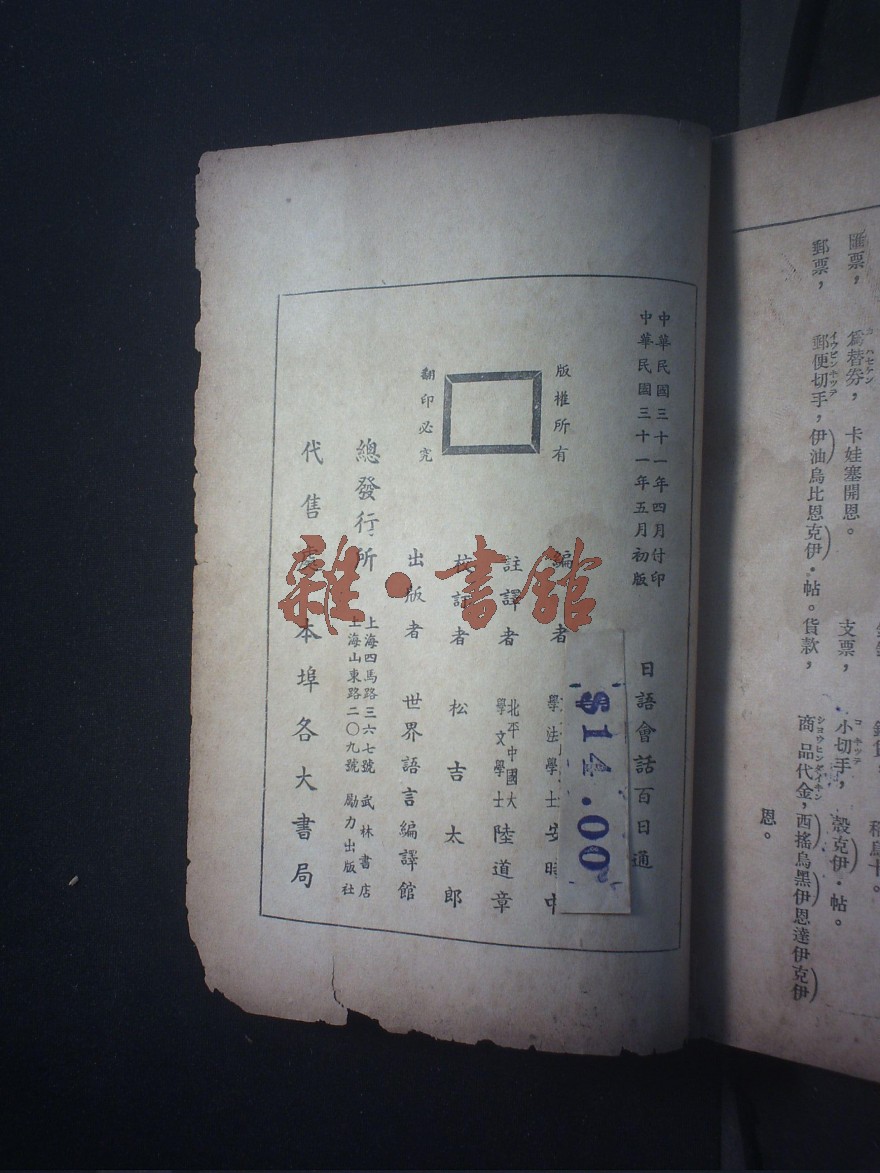 中華民國三十一年四月付印
中華民國三十一年五月初版
日語會話百日通
版權所有
翻印必究
編 者
學法學士 安時中
註譯者
北平中國大
學文學士 陸道章
校証者 松吉太郎
出版者 世界語言編譯館
總發行所
上海四馬路三六七號 武林書店
上海山東路二〇九號 勵力出版社
代售處 本埠各大書局
$14.00
雜·書館
匯票, 爲替券, 卡娃塞開恩。 支票, 小切手, 殼克伊)·帖。
カハセケン
コ キッテ
郵票, 郵便切手, 伊油烏比恩克伊)·帖。 貨款, 商品代金, 西搖烏黑伊恩達伊克伊)
イウビンキッテ
ショウヒンダイキン
恩。